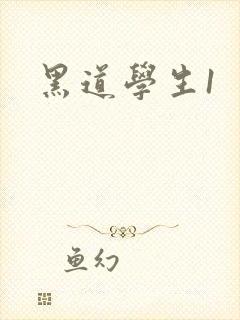 黑道學生1
魚幻